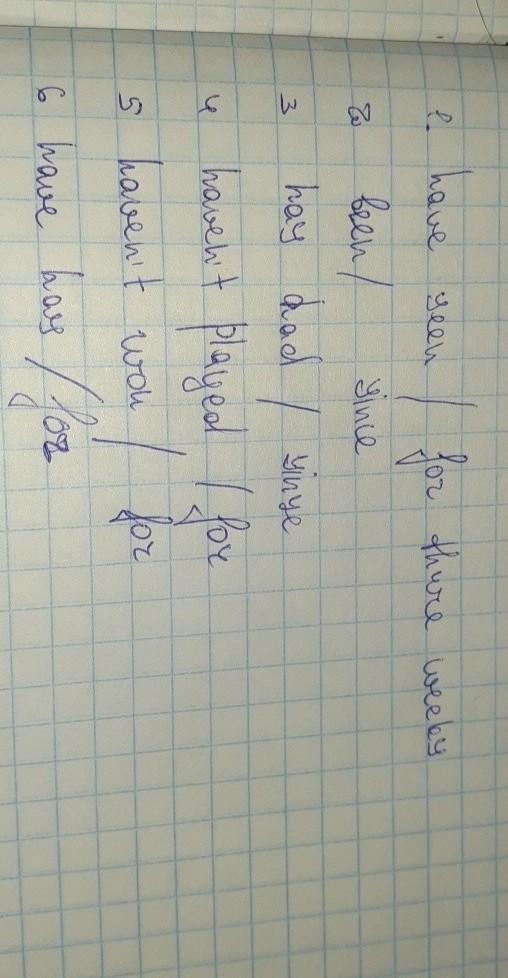 1. have seen / for thure weeks
2 been / since
3 has had / sinse
4 haven't played / for
5 haven't won / for
6 have has / for